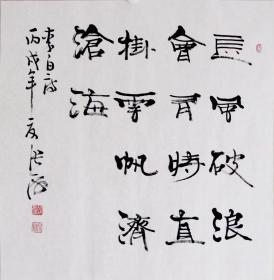 長風破浪
會有時直
掛雲帆濟
滄海
李白詩
丙戌年